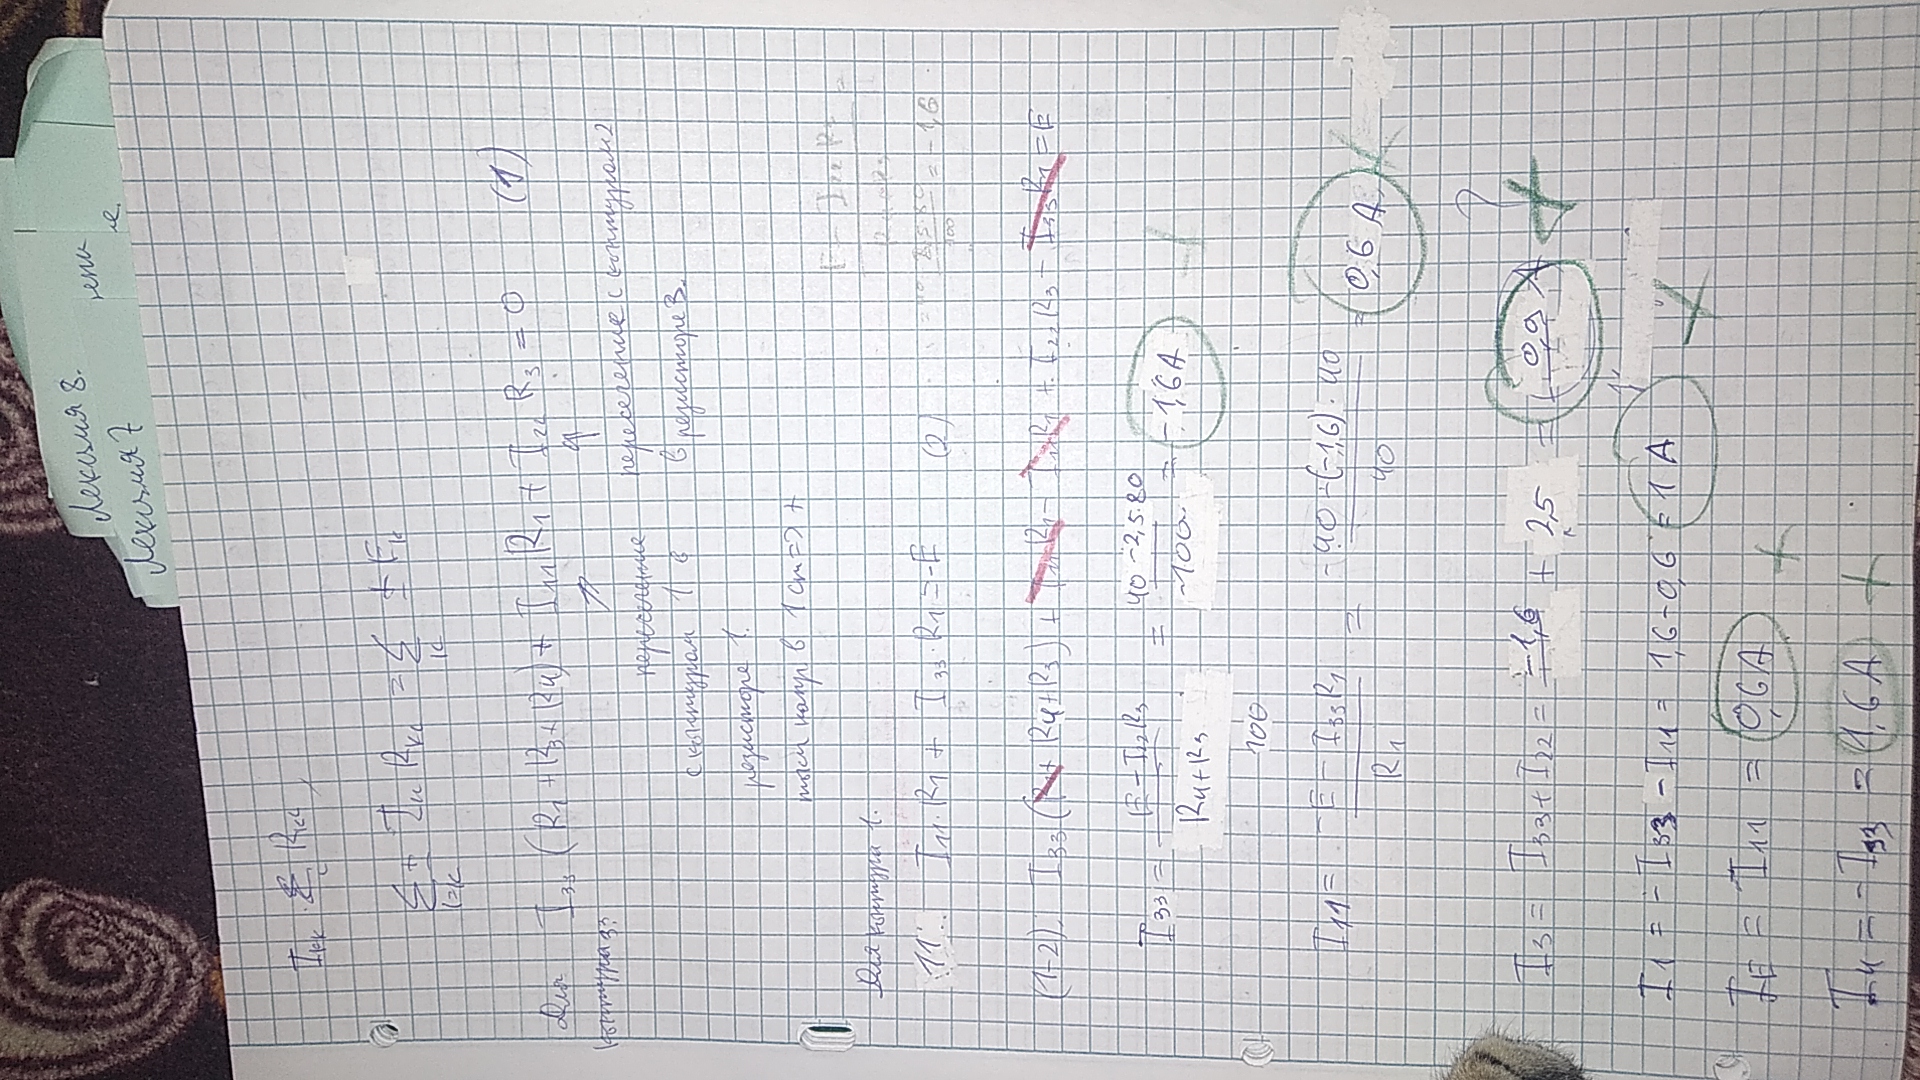 Лекция 8.
Лекция 7
I_кк · Σ_i R_кi,
Σ_{i=к} ± I_ii R_кi = Σ_к ± E_к
Для контура 33: I_33 (R_1 + R_3 + R_4) + I_11 R_1 + I_22 R_3 = 0 (1)
пересечение с контуром 1 в резисторе 1.
пересечение с контуром 2 в резисторе 3.
токи напр в 1 ст => +
Для контура 1.
11: I_11 · R_1 + I_33 · R_1 = -E (2)
E - I_22 R_3 =
R_4 + R_3
2,5·80
100
= -1,6
(1-2): I_33 (R_1 + R_4 + R_3) + I_11 R_1 - I_11 R_1 + I_22 R_3 - I_33 R_1 = E
I_33 = (E - I_22 R_3) / (R_4 + R_3) = (40 - 2,5·80) / 100 = -1,6 A +
100
I_11 = (-E - I_33 R_1) / R_1 = (-40 - (-1,6) · 40) / 40 = 0,6 A +
I_3 = I_33 + I_22 = -1,6 + 2,5 = 0,9 A + ?
I_1 = -I_33 - I_11 = 1,6 - 0,6 = 1 A +
I_E = I_11 = 0,6 A +
I_4 = -I_33 = 1,6 A +